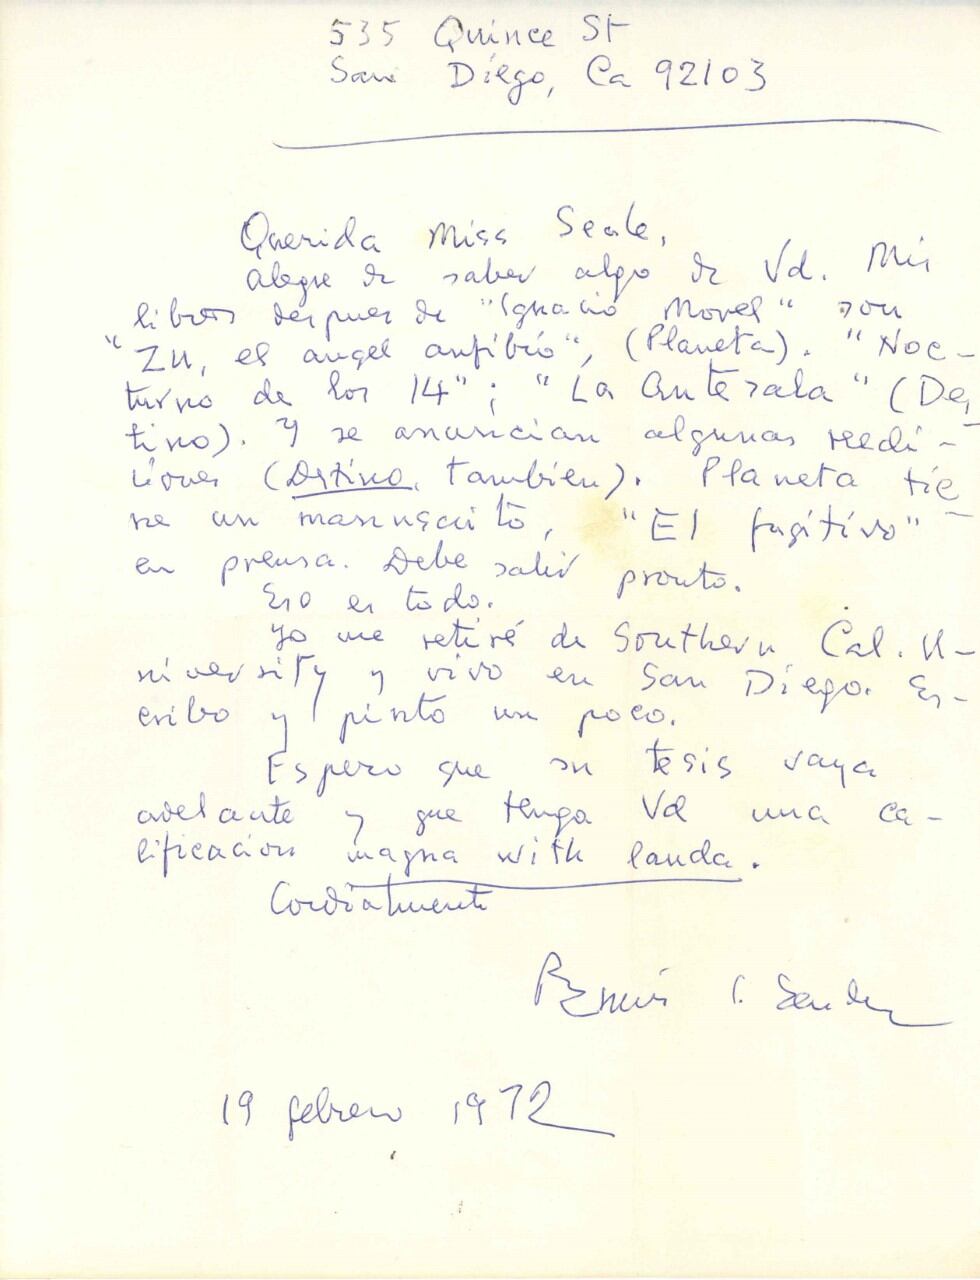 535 Quince St
San Diego, Ca 92103
Querida Miss Seale,
alegre de saber algo de Vd. Mis
libros despues de "Ignacio Morel" son
"Zu, el angel anfibio", (Planeta). "Noc-
turno de los 14"; "La antesala" (Des
tino). Y se anuncian algunas reedi-
ciones (Destino, tambien). Planeta tie-
ne un manuscrito, "El fugitivo"
en prensa. Debe salir pronto.
Eso es todo.
Yo me retiré de Southern Cal. U-
niversity y vivo en San Diego. Es-
cribo y pinto un poco.
Espero que su tesis vaya
adelante y que tenga Vd una ca-
lificacion magna with lauda.
Cordialmente
Ramón J. Sender
19 febrero 1972